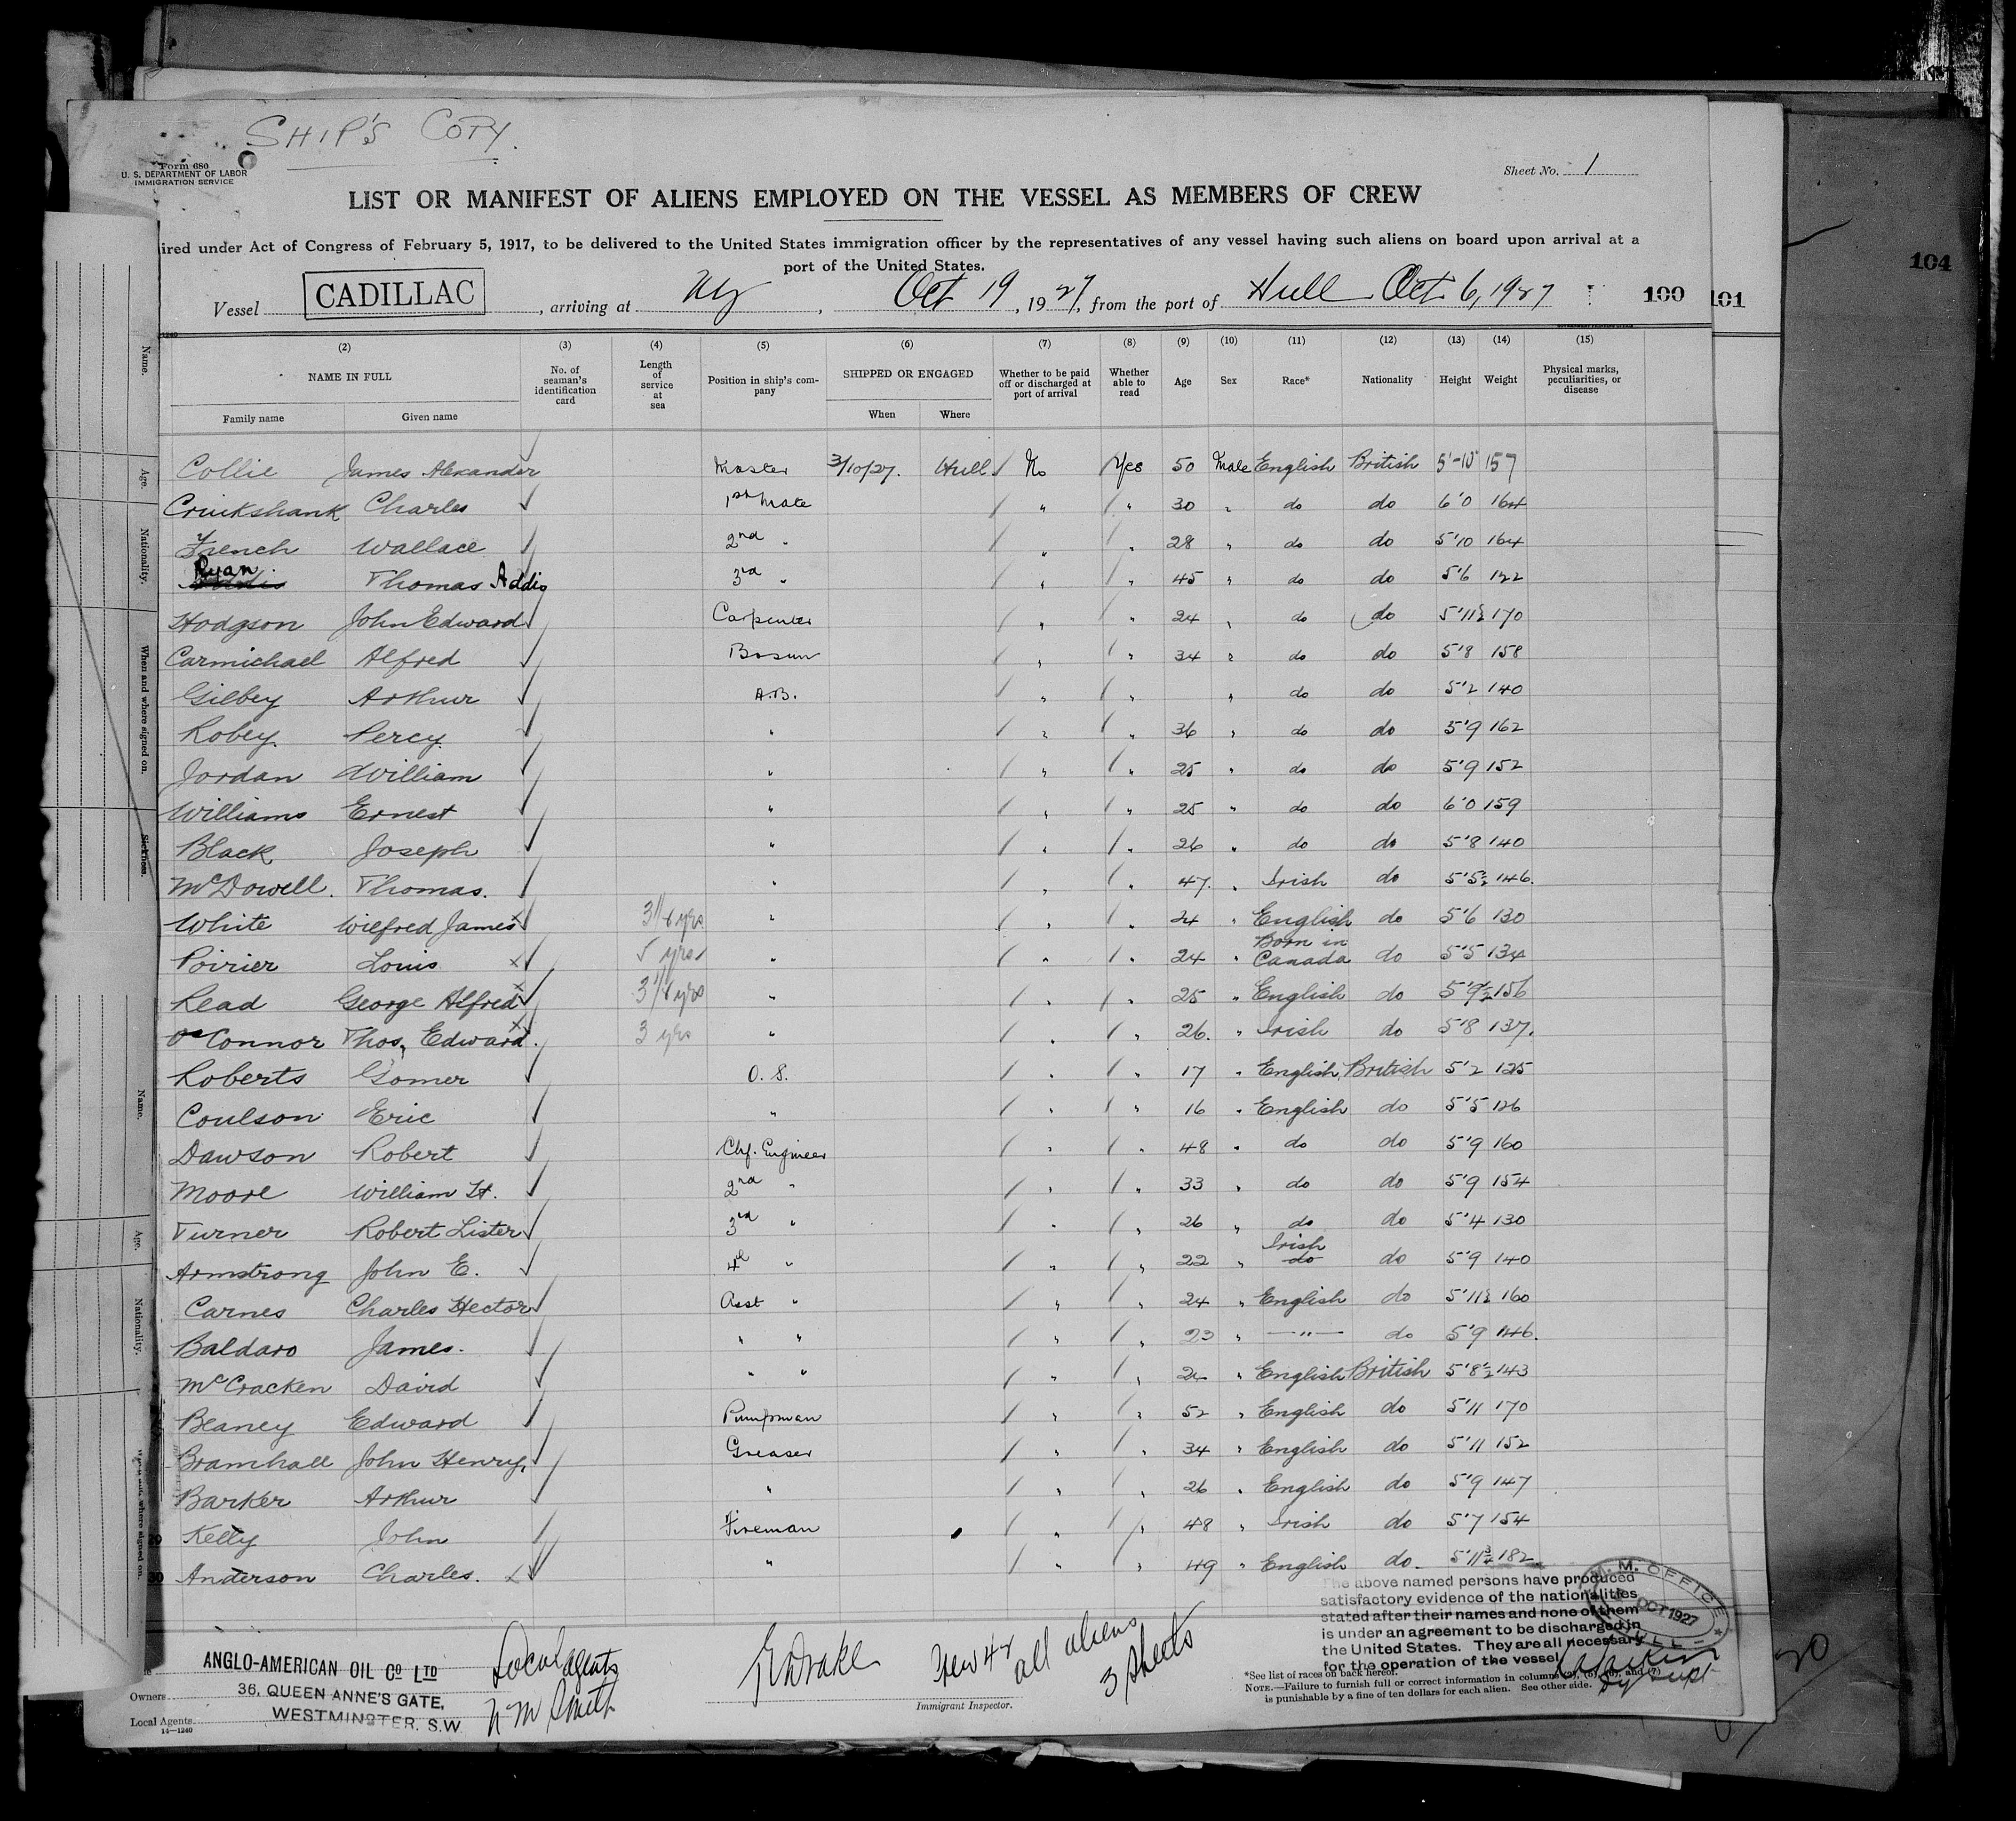 SHIP'S COPY.
Form 680
U. S. DEPARTMENT OF LABOR
IMMIGRATION SERVICE
Sheet No. 1
LIST OR MANIFEST OF ALIENS EMPLOYED ON THE VESSEL AS MEMBERS OF CREW
ired under Act of Congress of February 5, 1917, to be delivered to the United States immigration officer by the representatives of any vessel having such aliens on board upon arrival at a
port of the United States.
104
Vessel CADILLAC, arriving at Ny, Oct 19, 1927, from the port of Hull Oct 6, 1927 100 101
(2) (3) (4) (5) (6) (7) (8) (9) (10) (11) (12) (13) (14) (15)
NAME IN FULL No. of seaman's identification card Length of service at sea Position in ship's company SHIPPED OR ENGAGED Whether to be paid off or discharged at port of arrival Whether able to read Age Sex Race* Nationality Height Weight Physical marks, peculiarities, or disease
Family name Given name When Where
Collie James Alexander Master 3/10/27. Hull No Yes 50 Male English British 5'-10" 157
Cruikshank Charles 1st Mate " " 30 " do do 6'0 164
French Wallace 2nd " " " 28 " do do 5'10 164
Ryan Thomas Addis 3rd " " " 45 " do do 5'6 122
Hodgson John Edward Carpenter " " 24 " do do 5'11½ 170
Carmichael Alfred Bosun " " 34 " do do 5'8 158
Gilbey Arthur A.B. " " " do do 5'2 140
Robey Percy " " " 36 " do do 5'9 162
Jordan William " " " 25 " do do 5'9 152
Williams Ernest " " " 25 " do do 6'0 159
Black Joseph " " " 26 " do do 5'8 140
McDowell Thomas. " " " 47. " Irish do 5'5½ 146.
White Wilfred James 3 1/4 yrs " " " 24 " English do 5'6 130
Poirier Louis 5 yrs " " " 24 " Born in Canada do 5'5 134
Read George Alfred 3 1/4 yrs " " " 25 " English do 5'9½ 156
O'Connor Thos, Edward. 3 yrs " " " 26. " Irish do 5'8 137.
Roberts Gomer O. S. " " 17 " English British 5'2 125
Coulson Eric " " " 16 " English do 5'5 126
Dawson Robert Chf. Engineer " " 48 " do do 5'9 160
Moore William H. 2nd " " " 33 " do do 5'9 154
Turner Robert Lister 3rd " " " 26 " do do 5'4 130
Armstrong John E. 4th " " " 22 " Irish do do 5'9 140
Carnes Charles Hector Asst " " " 24 " English do 5'11½ 160
Baldaro James. " " " " 23 " —"— do 5'9 146.
McCracken David " " " " " English British 5'8½ 143
Beaney Edward Pumpman " " 52 " English do 5'11 170
Bramhall John Henry, Greaser " " 34 " English do 5'11 152
Barker Arthur " " " 26 " English do 5'9 147
Kelly John Fireman " " 48 " Irish do 5'7 154
30 Anderson Charles. " " " 49 " English do. 182
The above named persons have produced
satisfactory evidence of the nationalities
stated after their names and none of them
is under an agreement to be discharged in
the United States. They are all necessary
for the operation of the vessel
M. M. OFFICE
OCT 1927
HULL
Dy Supt
ANGLO-AMERICAN OIL CO LTD
36, QUEEN ANNE'S GATE,
WESTMINSTER, S.W.
Owners
Local Agents
14—1240
Local agents
N M Smith
Drake
Crew 42
all aliens
3 sheets
Immigrant Inspector.
*See list of races on back hereof.
NOTE.—Failure to furnish full or correct information in columns (2), (5), (6), and (7)
is punishable by a fine of ten dollars for each alien. See other side.
Name.
Age.
Nationality.
When and where signed on.
Sickness.
Name.
Age.
Nationality.